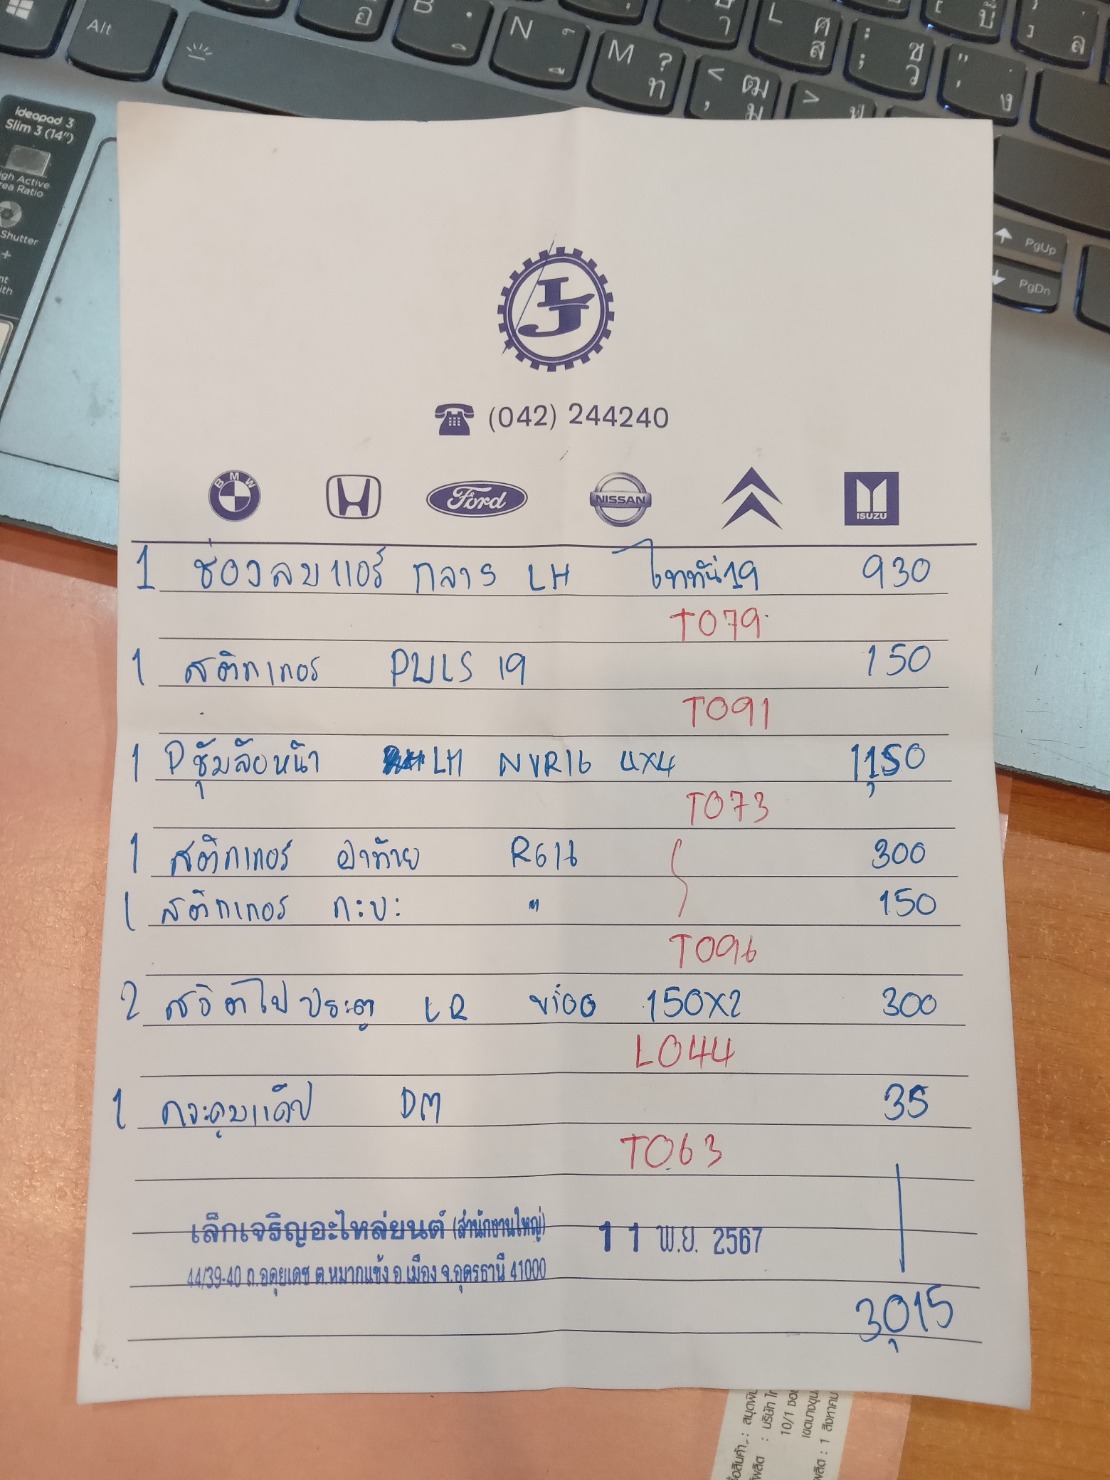 Alt
B
N
M
L
ideapad 3
Slim 3 (14")
PgUp
PgDn
LJ
(042) 244240
BMW
Ford
NISSAN
ISUZU
1 ช่องลมแอร์ กลาง LH ไททัน19 930
T079
1 สติกเกอร์ PULS 19 150
T091
1 ปซุ้มล้อหน้า LH NVR16 4X4 1,150
T073
1 สติกเกอร์ ฝาท้าย R611 300
1 สติกเกอร์ กะบะ " 150
T096
2 สวิตไฟประตู LR วีโก้ 150X2 300
L044
1 DM 35
T063
เล็กเจริญอะไหล่ยนต์ (สำนักงานใหญ่) 11 พ.ย. 2567
44/39-40 ถ.อดุยเดช ต.หมากแข้ง อ.เมือง จ.อุดรธานี 41000
3,015